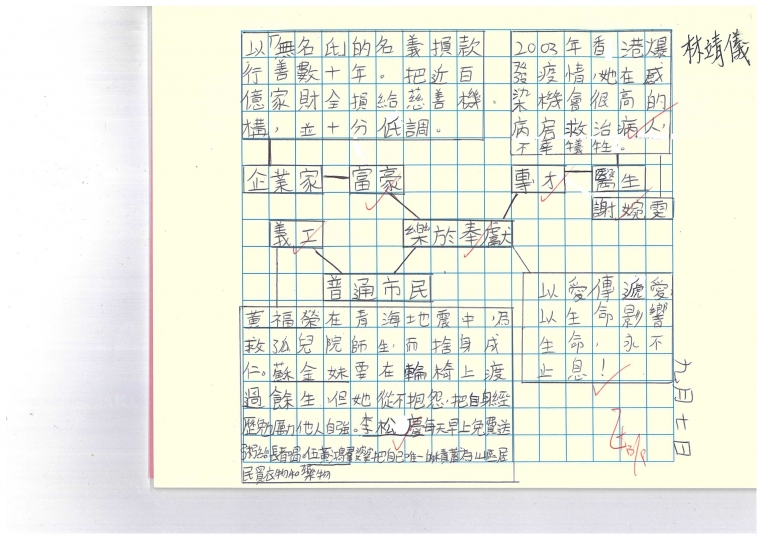 以「無名氏」的名義損款
行善數十年。把近百
億家財全損給慈善機
構，並十分低調。
2003年香港爆
發疫情，她在感
染機會很高的
病房救治病人，
不幸犧牲。
林靖儀
企業家
富豪
專才
醫生
謝婉雯
義工
樂於奉獻
普通市民
以愛傳遞愛
以生命影響
生命，永不
止息！
黃福榮在青海地震中，為
救孤兒院師生，而捨身成
仁。蘇金妹要在輪椅上渡
過餘生，但她從不抱怨，把自身經
歷勉勵他人自強。李松慶每天早上免費送
粥給長者喝。伍黃鴻把自己唯一的積蓄為山區居
民買衣物和藥物
九月七日